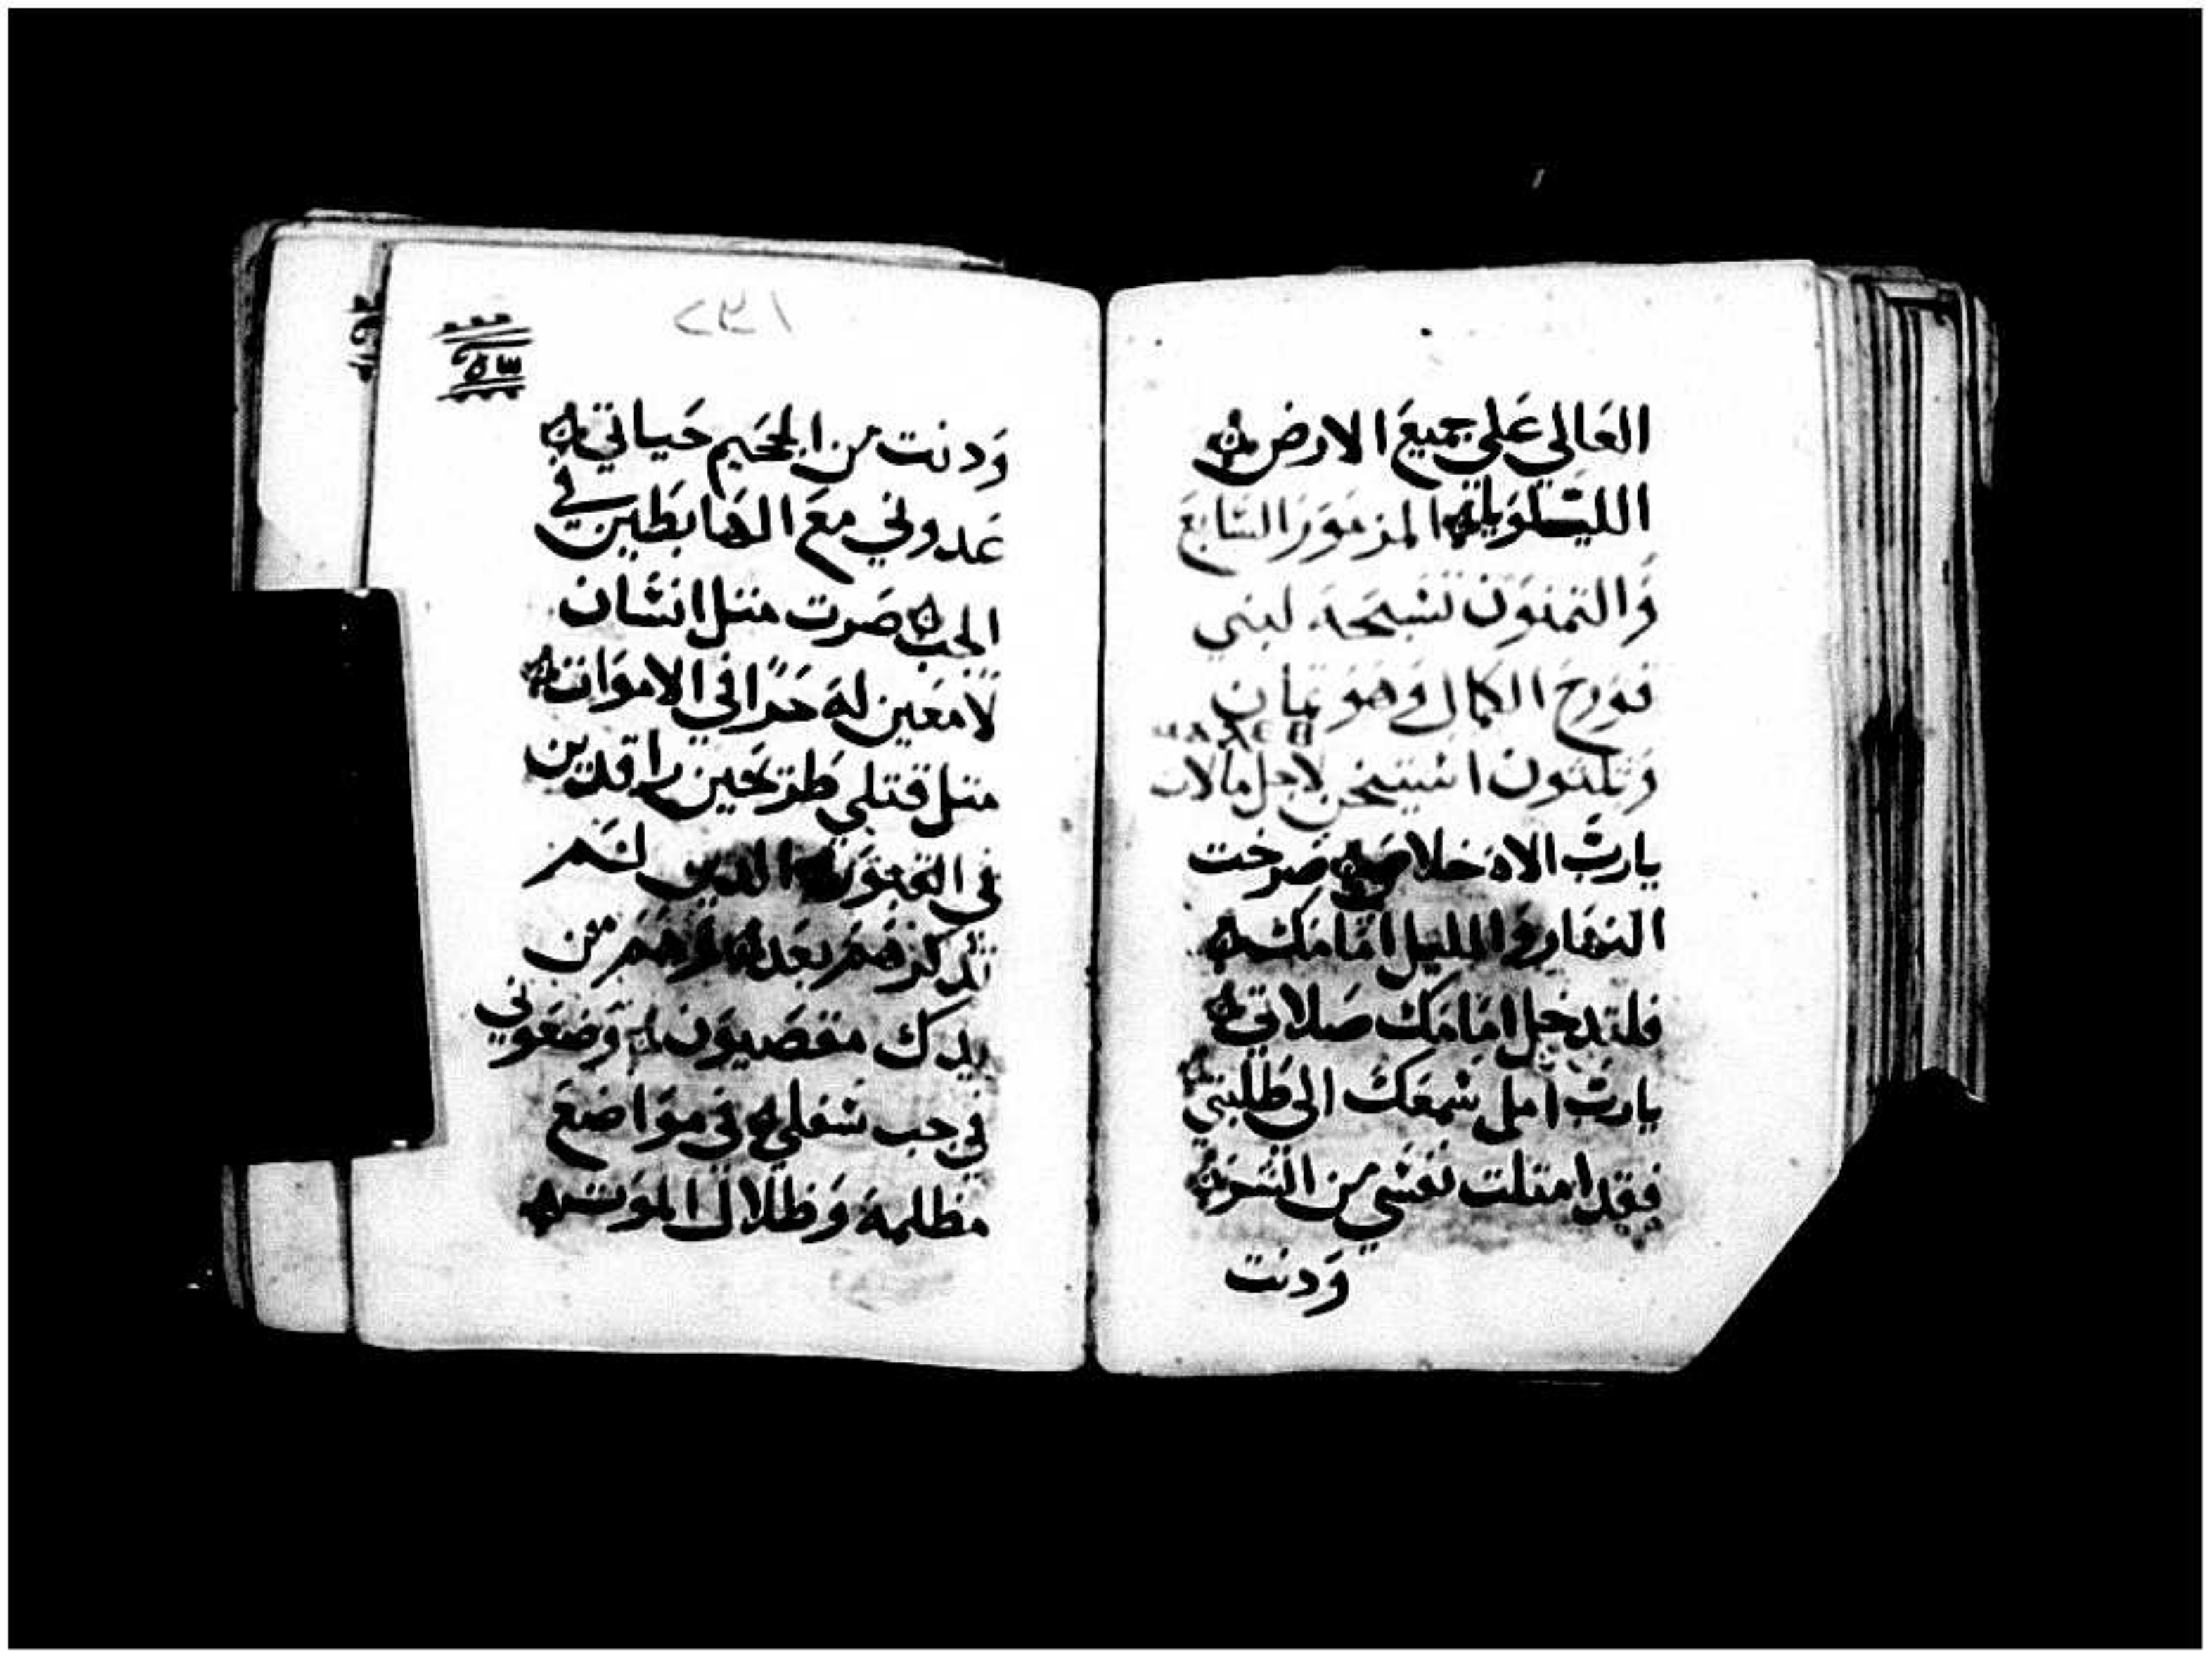 العالي علي جميع الارض
الليلويا المزمور السابع
والتمنون تسبحة لبني
قورح الكمال وهو تمان
وتلتون استيخن لاجل مالات
يارب الاه خلاصي صرخت
النهار والليل امامك
فلتدخل امامك صلاتي
يارب امل سمعك الي طلبتي
فقد امتلت نفسي من الشر
ودنت
١٣٢
ودنت من الجحيم حياتي
عدوني مع الهابطين في
الجب صرت متل انسان
لا معين له حرا في الاموات
متل قتلي طريحين راقدين
في القبور الدين لم
تدكرهم بعد وهم من
يدك مقصيون وضعوني
في جب سفلي في مواضع
مظلمة وظلال الموت